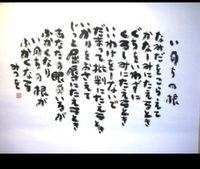 いのちの根
なみだをこらえて
かなしみにたえるとき
ぐちをいわずに
くるしみにたえるとき
いいわけをしないで
だまって批判にたえるとき
いかりをおさえて
じっと屈辱にたえるとき
あなたの眼のいろが
ふかくなり
いのちの根が
ふかくなる
みつを